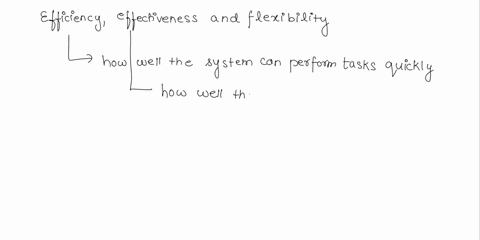 Efficiency, effectiveness and flexibility
how well the system can perform tasks quickly
how well th